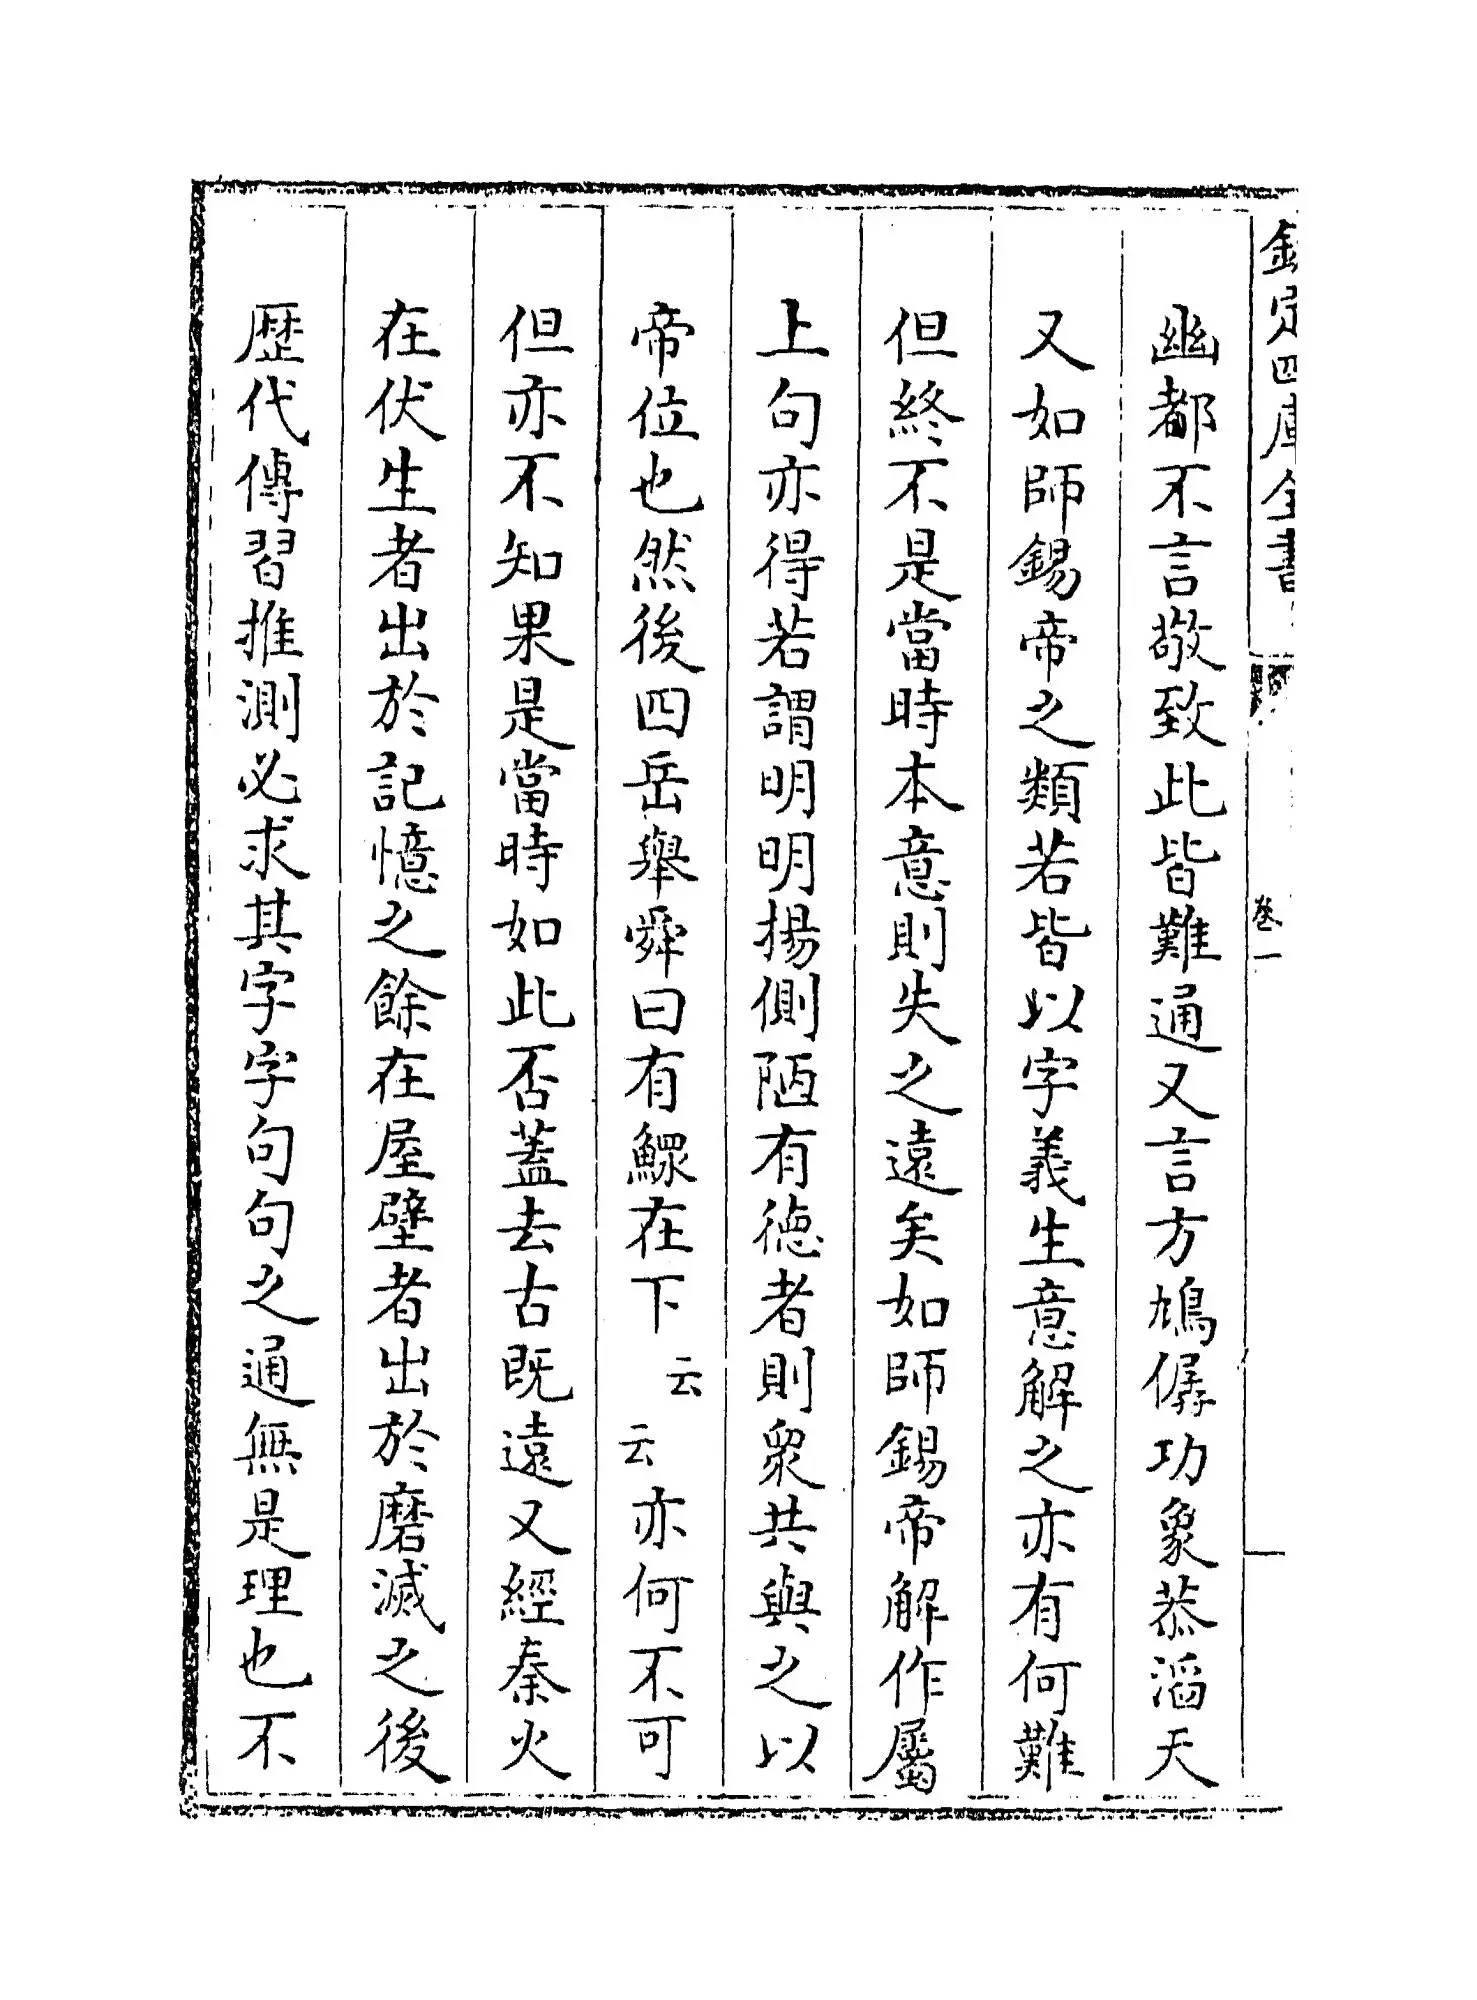 欽定四庫全書
卷一
幽都不言敬致此皆難通又言方鳩僝功象恭滔天
又如師錫帝之類若皆以字義生意解之亦有何難
但終不是當時本意則失之遠矣如師錫帝解作屬
上句亦得若謂明明揚側陋有徳者則衆共與之以
帝位也然後四岳舉舜曰有鰥在下云云亦何不可
但亦不知果是當時如此否蓋去古既遠又經秦火
在伏生者出於記憶之餘在屋壁者出於磨滅之後
歴代傳習推測必求其字字句句之通無是理也不